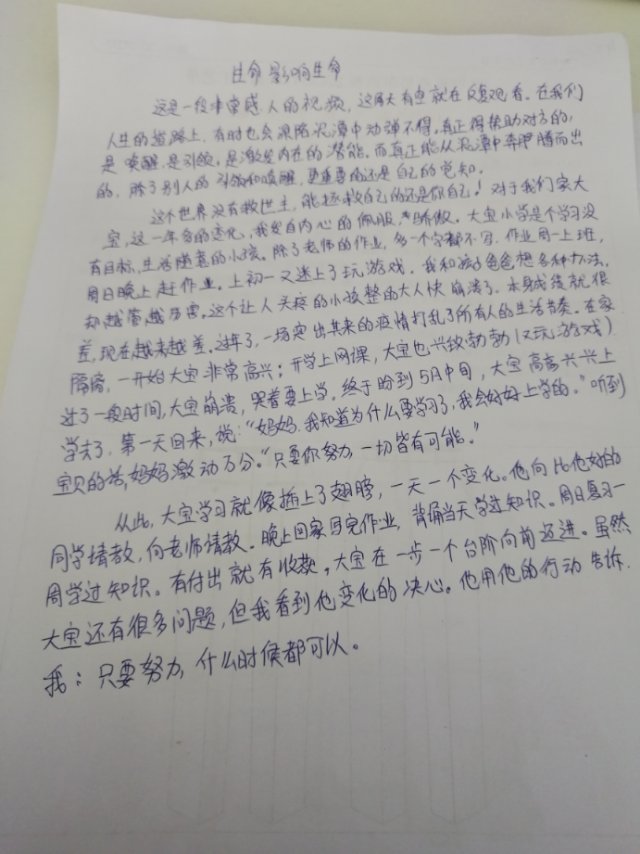 生命影响生命
这是一段非常感人的视频，这两天有空就在反复观看。在我们
人生的道路上，有时也会深陷泥潭中动弹不得，真正得帮助对方的，
是唤醒，是引领，是激发内在的潜能。而真正能从泥潭中奔腾而出
的，除了别人的引领和唤醒，更重要的还是自己的觉知。
这个世界没有救世主，能拯救自己的还是你自己！对于我们家大
宝，这一年多的变化，我发自内心的佩服，骄傲。大宝小学是个学习没
有目标，生活随意的小孩。除了老师的作业，多一个字都不写，作业周一上班，
周日晚上赶作业。上初一又迷上了玩游戏，我和孩子爸爸想多种办法，
却越管越厉害。这个让人头疼的小孩整的大人快崩溃了，本身成绩就很
差，现在越来越差。过年了，一场突出其来的疫情打乱了所有人的生活节奏。在家
隔离，一开始大宝非常高兴；开学上网课，大宝也兴致勃勃（又玩游戏）
过了一段时间，大宝崩溃，哭着要上学，终于盼到5月中旬，大宝高高兴兴上
学去了，第一天回来，说：“妈妈，我知道为什么要学习了，我会好好上学的。”听到
宝贝的话，妈妈激动万分。“只要你努力，一切皆有可能。”
从此，大宝学习就像插上了翅膀，一天一个变化。他向比他好的
同学请教，向老师请教。晚上回家写完作业，背诵当天学过知识。周日复习一
周学过知识。有付出就有收款，大宝在一步一个台阶向前迈进。虽然
大宝还有很多问题，但我看到他变化的决心。他用他的行动告诉
我：只要努力，什么时候都可以。